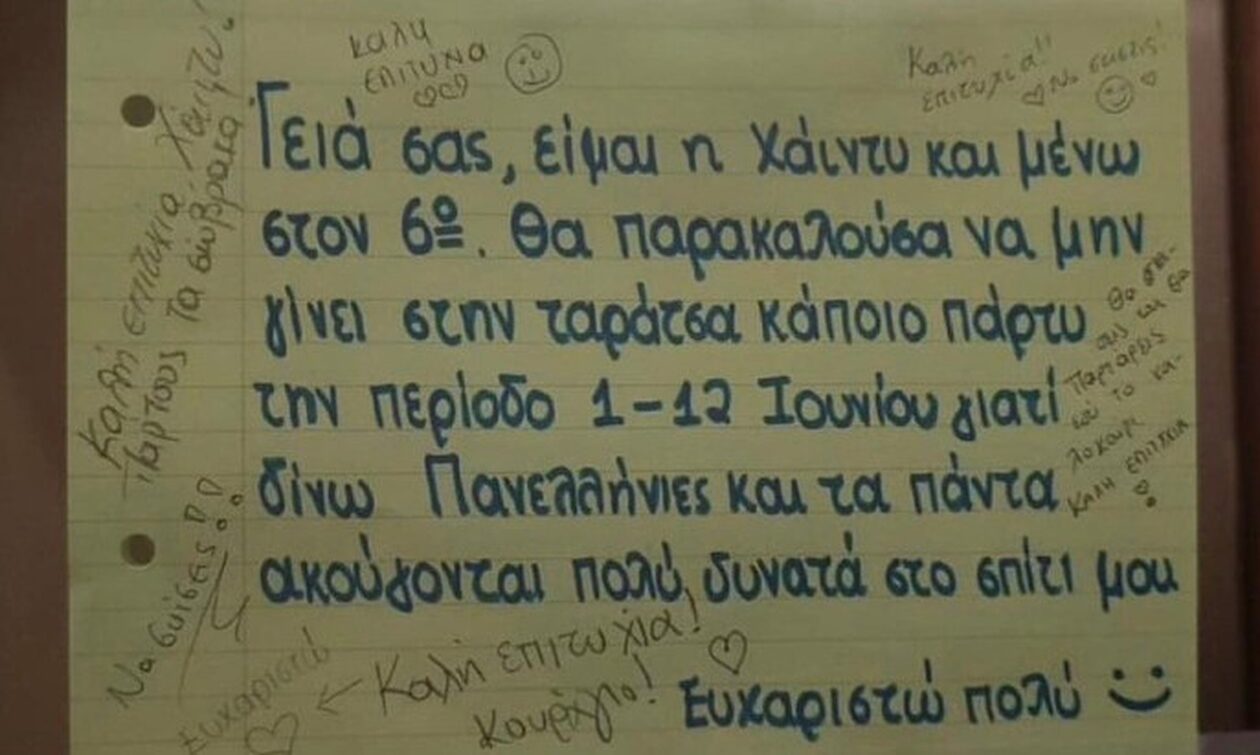 καλη
επιτυχια
Καλή
επιτυχία!!
Να σκίσεις!
Γειά σας, είμαι η Χάιντυ και μένω
στον 6º. Θα παρακαλούσα να μην
γίνει στην ταράτσα κάποιο πάρτυ
την περίοδο 1-12 Ιουνίου γιατί
δίνω Πανελλήνιες και τα πάντα
ακούγονται πολύ δυνατά στο σπίτι μου
Ευχαριστώ πολύ :)
Καλή επιτυχία Χάιντυ!
πάρτους τα σώβρακα
Να σκίσεις!!
Ευχαριστώ
← Καλή επιτυχία!
Κουράγιο!
Θα
και θα
το κα-
λοκαιρι
Καλη επιτυχια